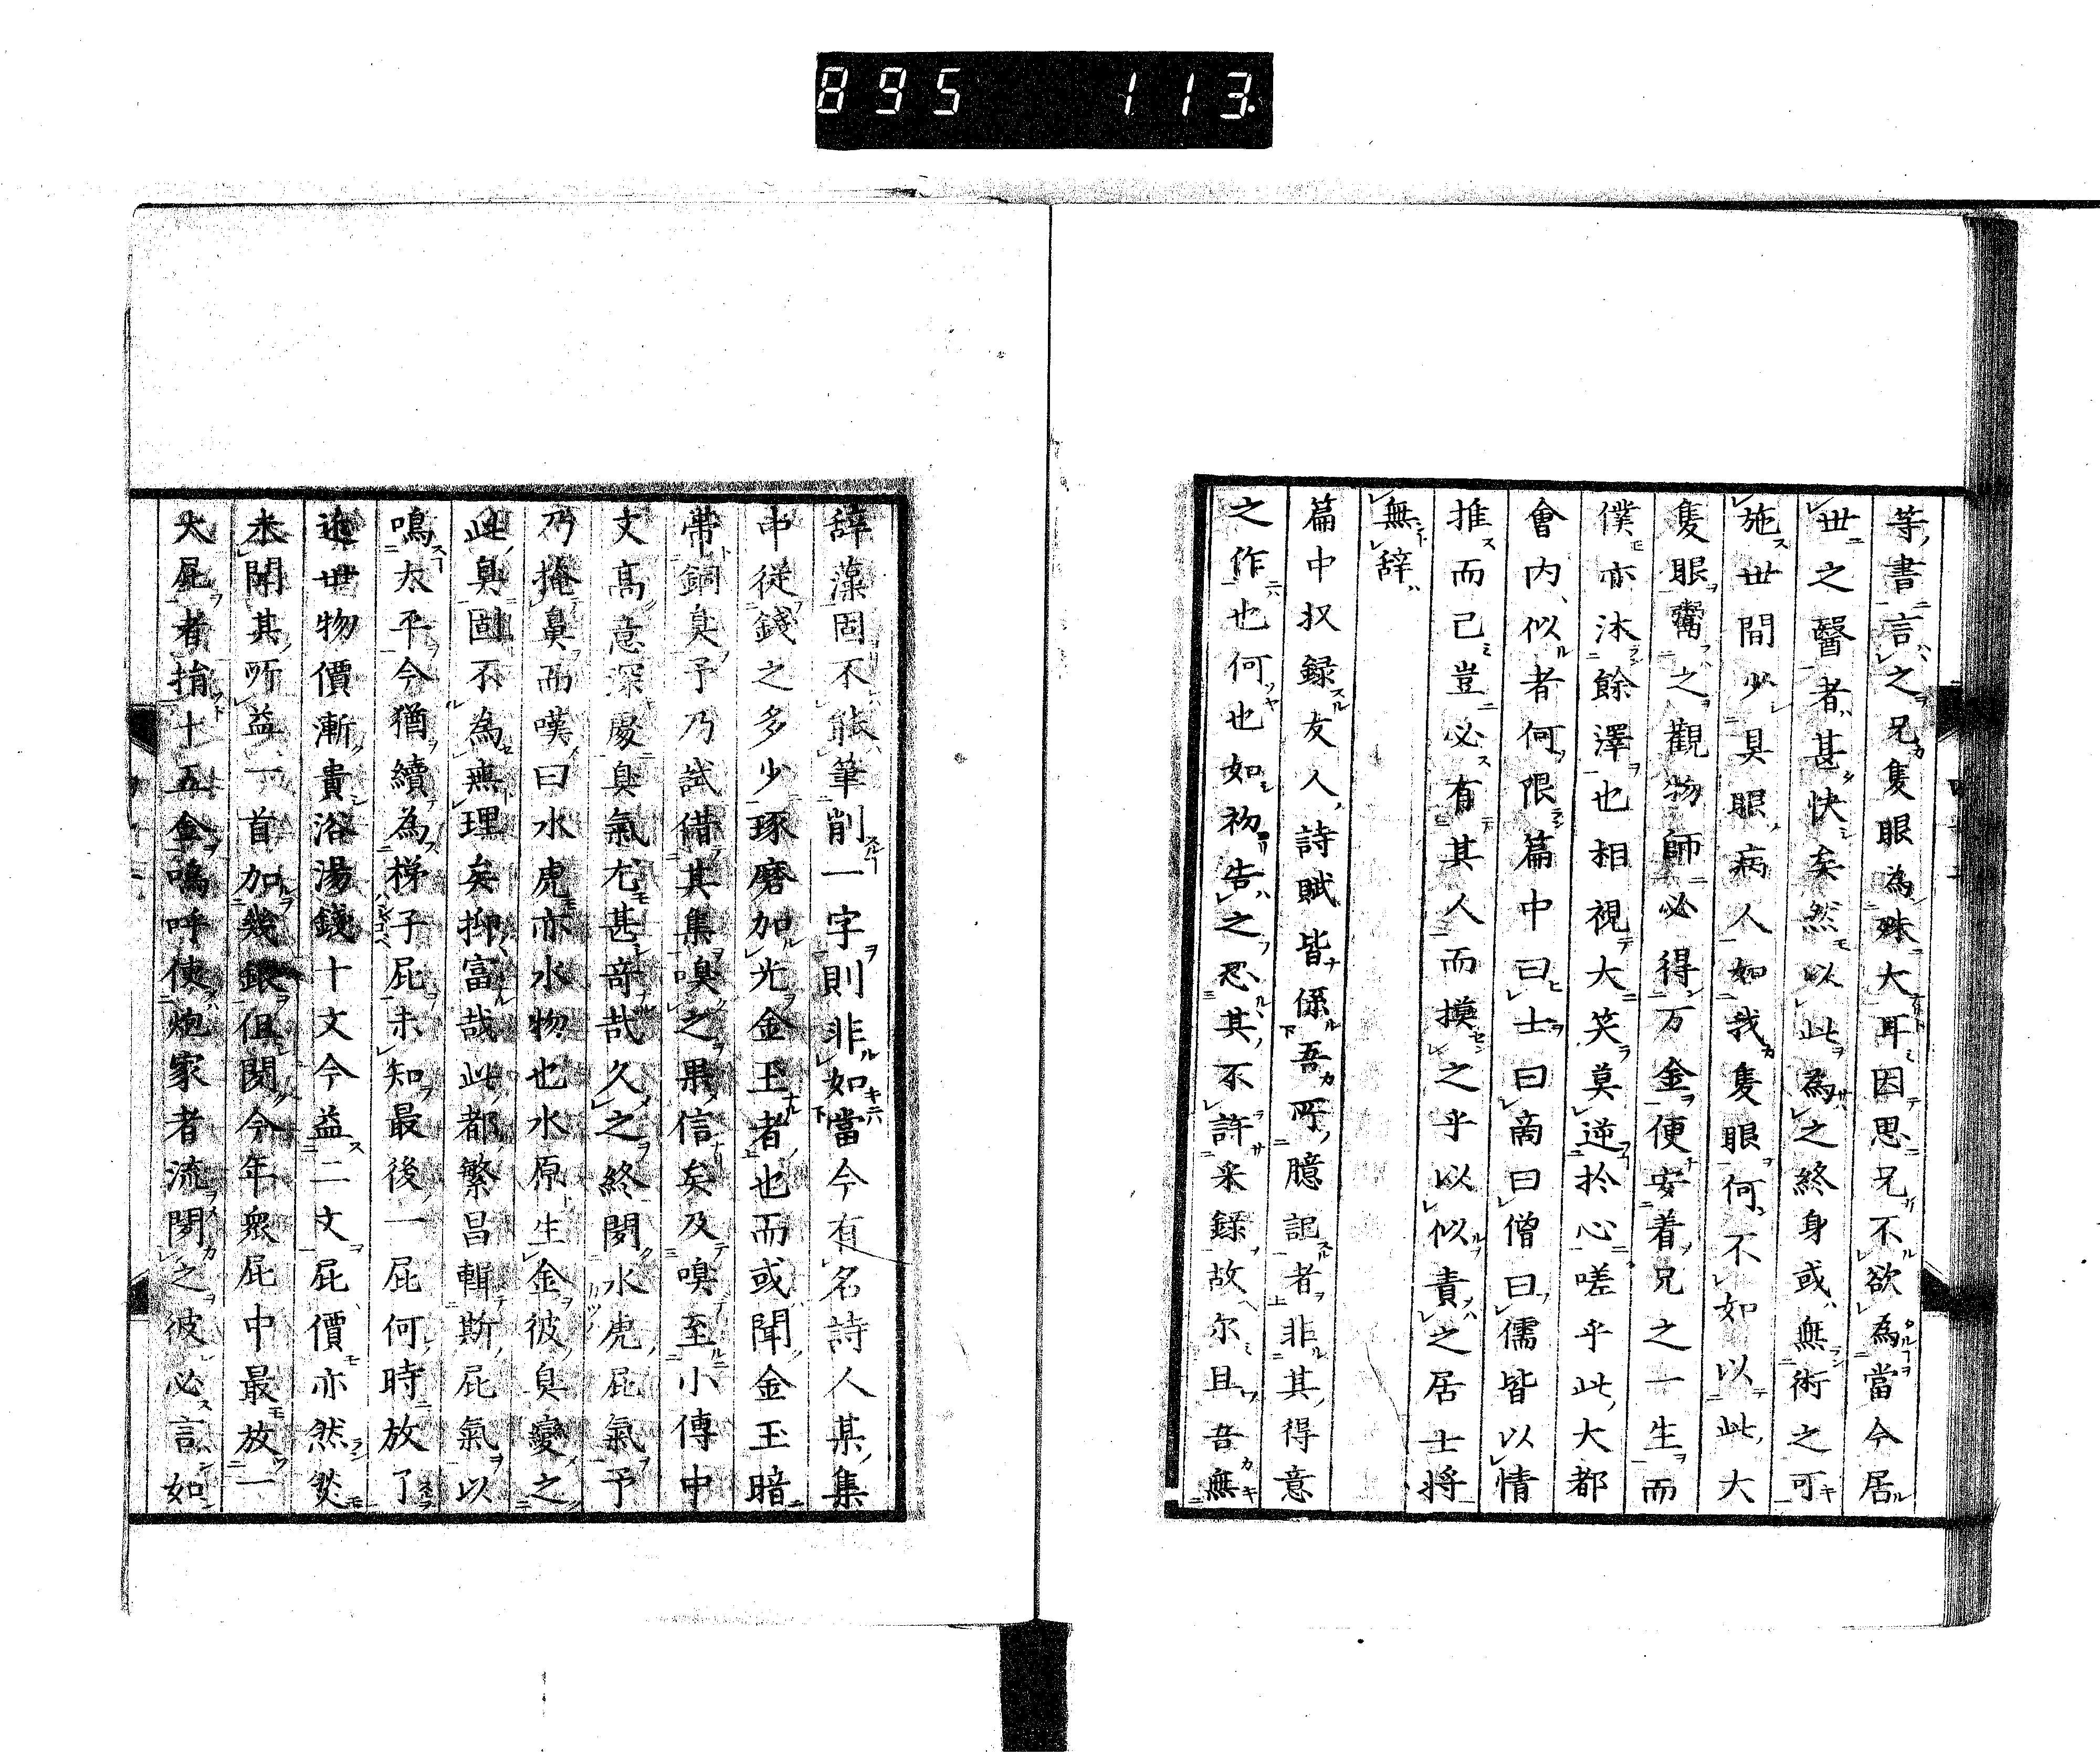 895 113
等書言之兄隻眼為殊大耳因思兄不欲為當今居
世之醫者甚快矣然以此為之終身或無術之可
施世間少具眼病人如我隻眼何不如以此大
隻眼鬻之觀物師必得万金便安着兄之一生而
僕亦沐餘澤也相視大笑莫逆於心嗟乎此大都
會内似者何限篇中曰士曰商曰僧曰儒皆以情
推而己豈必有其人而摸之乎以似責之居士将
無辞
篇中収録友人詩賦皆係吾所臆記者非其得意
之作也何也如初告之恐其不許来録故尓且吾無
辞藻固不能筆削一字則非如當今有名詩人某集
中從錢之多少琢磨加光金玉者也而或聞金玉暗
帶銅臭予乃試借其集嗅之果信矣及嗅至小傳中
文高意深處臭氣尤甚竒哉久之終閱水虎屁氣予
乃掩鼻而嘆曰水虎亦水物也水原生金彼臭變之
此臭固不為無理矣抑富哉此都繁昌輯斯屁氣以
鳴太平今猶續為梯子屁未知最後一屁何時放了
近世物價漸貴浴湯錢十文今益二文屁價亦然焚
未聞其所益一首加幾銀但閱今年衆屁中最放一
大屁者捐十五金嗚呼使炮家者流閱之彼必言如